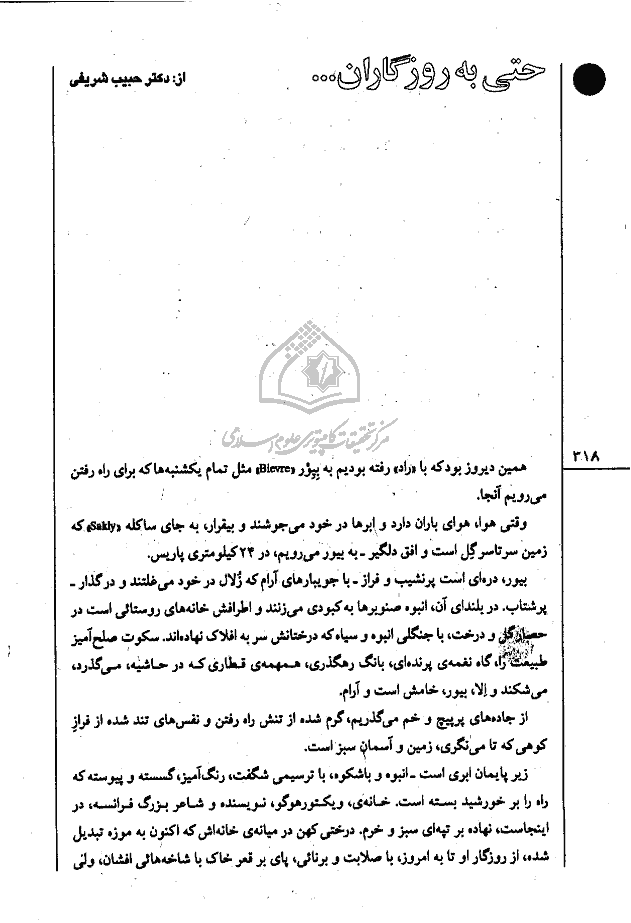 حتی به روزگاران...
از: دکتر حبیب شریفی
مرکز تحقیقات کامپیوتری علوم اسلامی
۳۱۸
همین دیروز بود که با «راد» رفته بودیم به بی‌یِوْر «Bievre» مثل تمام یکشنبه‌ها که برای راه رفتن
می‌رویم آنجا.
وقتی هوا، هوای باران دارد و ابرها در خود می‌جوشند و بیقرار، به جای ساکله «Sakly» که
زمین سرتاسر گِل است و افق دلگیر ـ به بیور می‌رویم، در ۲۴ کیلومتری پاریس.
بیور، دره‌ای است پرنشیب و فراز ـ با جویبارهای آرام که زُلال در خود می‌غلتند و در گذار ـ
پرشتاب. در بلندای آن، انبوه صنوبرها به کبودی می‌زنند و اطرافش خانه‌های روستائی است در
حصار گل و درخت، با جنگلی انبوه و سیاه که درختانش سر به افلاک نهاده‌اند. سکوت صلح‌آمیز
طبیعت را، گاه نغمه‌ی پرنده‌ای، بانگ رهگذری، همهمه‌ی قطاری که در حاشیه، می‌گذرد،
می‌شکند و اِلا، بیور، خامش است و آرام.
از جاده‌های پرپیچ و خم می‌گذریم، گرم شده از تنش راه رفتن و نفس‌های تند شده از فرازِ
کوهی که تا می‌نگری، زمین و آسمان سبز است.
زیر پایمان ابری است ـ انبوه و باشکوه، با ترسیمی شگفت، رنگ‌آمیز، گسسته و پیوسته که
راه را بر خورشید بسته است. خانه‌ی، ویکتورهوگو، نویسنده و شاعر بزرگ فرانسه، در
اینجاست، نهاده بر تپه‌ای سبز و خرم. درختی کهن در میانه‌ی خانه‌اش که اکنون به موزه تبدیل
شده، از روزگار او تا به امروز، با صلابت و برنائی، پای بر قعر خاک با شاخه‌هائی افشان، ولی